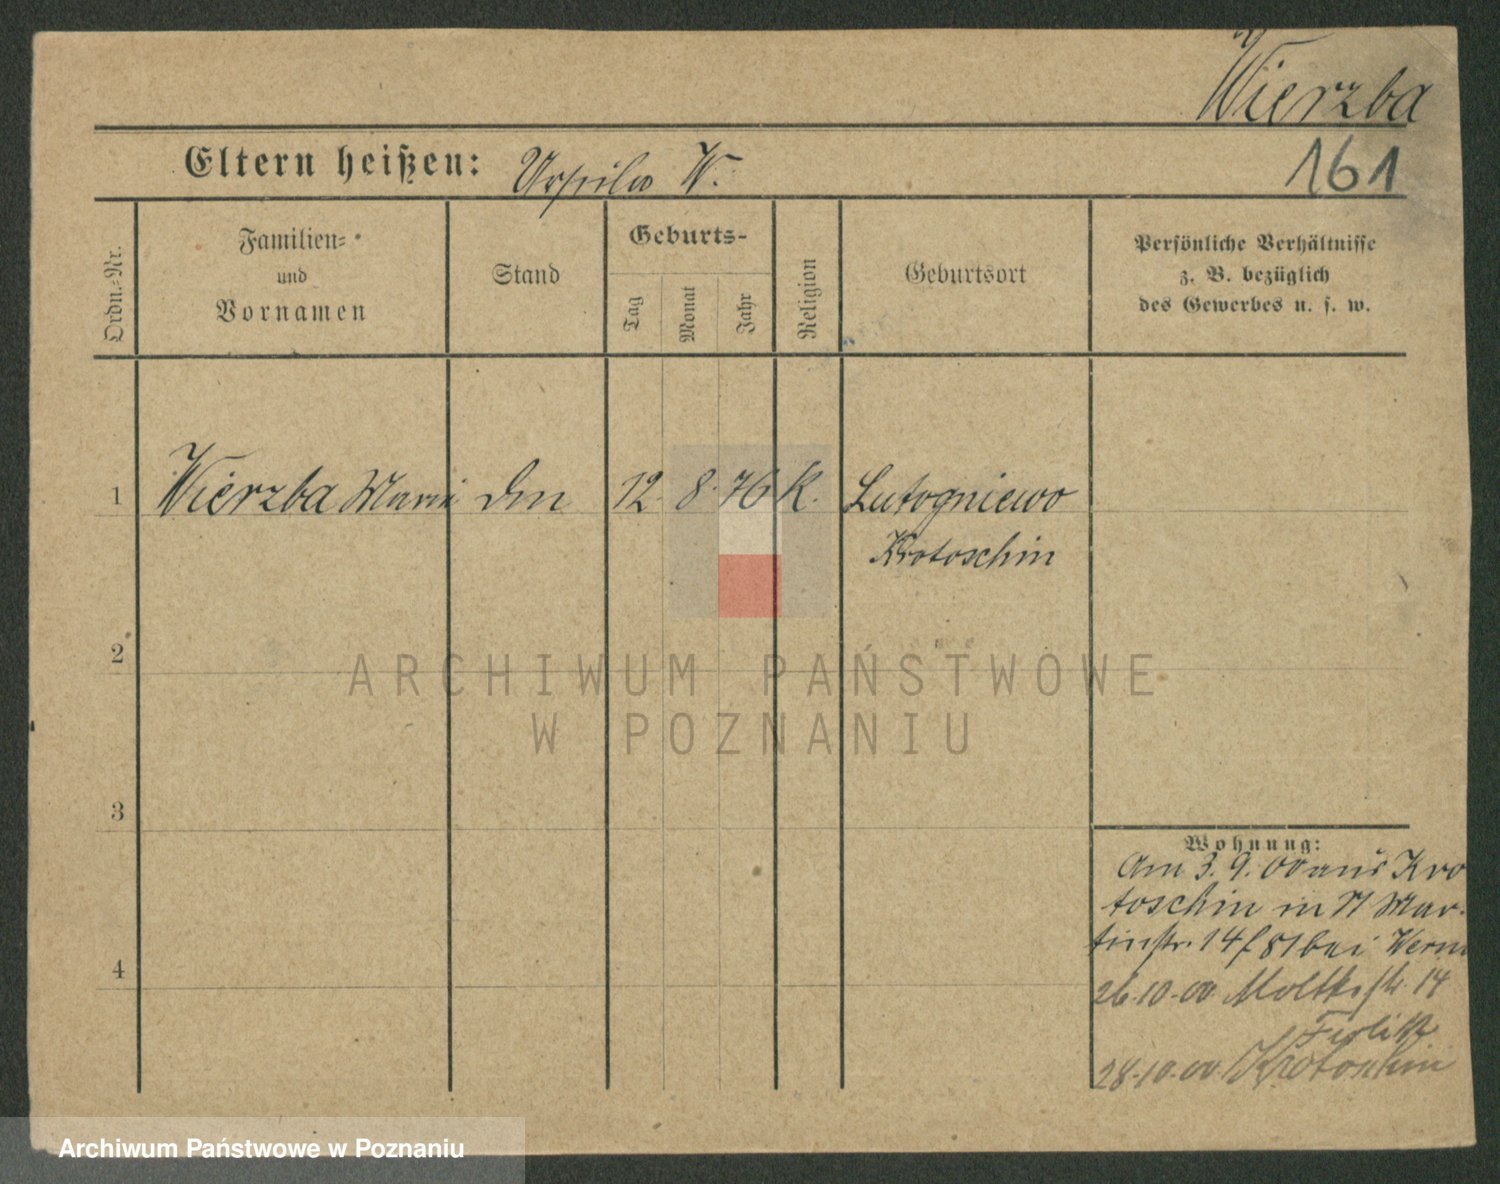 Wierzba
161
Eltern heißen: Ursula W.
Ordn.-Nr.
Familien-
und
Vornamen
Stand
Geburts-
Tag
Monat
Jahr
Religion
Geburtsort
Persönliche Verhältnisse
z. B. bezüglich
des Gewerbes u. s. w.
1 Wierzba Marie 12. 8. 76 K. Lutogniewo
Krotoschin
2
3
4
Wohnung:
Am 3. 9. 00 aus Kro
toschin in St Mar-
tinstr. 14 bei
26.10.00 Moltkestr. 14
28.10.00 Krotoschin
ARCHIWUM PAŃSTWOWE
W POZNANIU
Archiwum Państwowe w Poznaniu